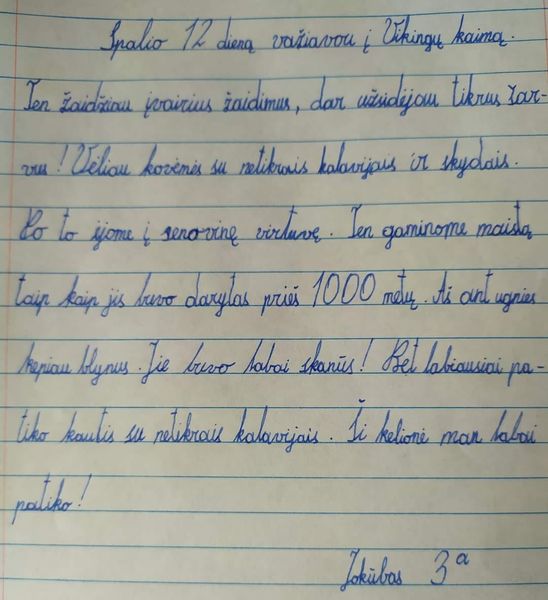 Spalio 12 dieną važiavou į Vikingų kaimą.
Ten žaidžiau įvairius žaidimus, dar užsidėjau tikrus šar-
vus! Vėliau kovėmės su netikrais kalavijais ir skydais.
Po to ėjome į senovinę virtuvę. Ten gaminome maistą
taip kaip jis buvo darytas prieš 1000 metų. Aš ant ugnies
kepiau blynus. Jie buvo labai skanūs! Bet labiausiai pa-
tiko kautis su netikrais kalavijais. Ši kelionė man labai
patiko!
Jokūbas 3a